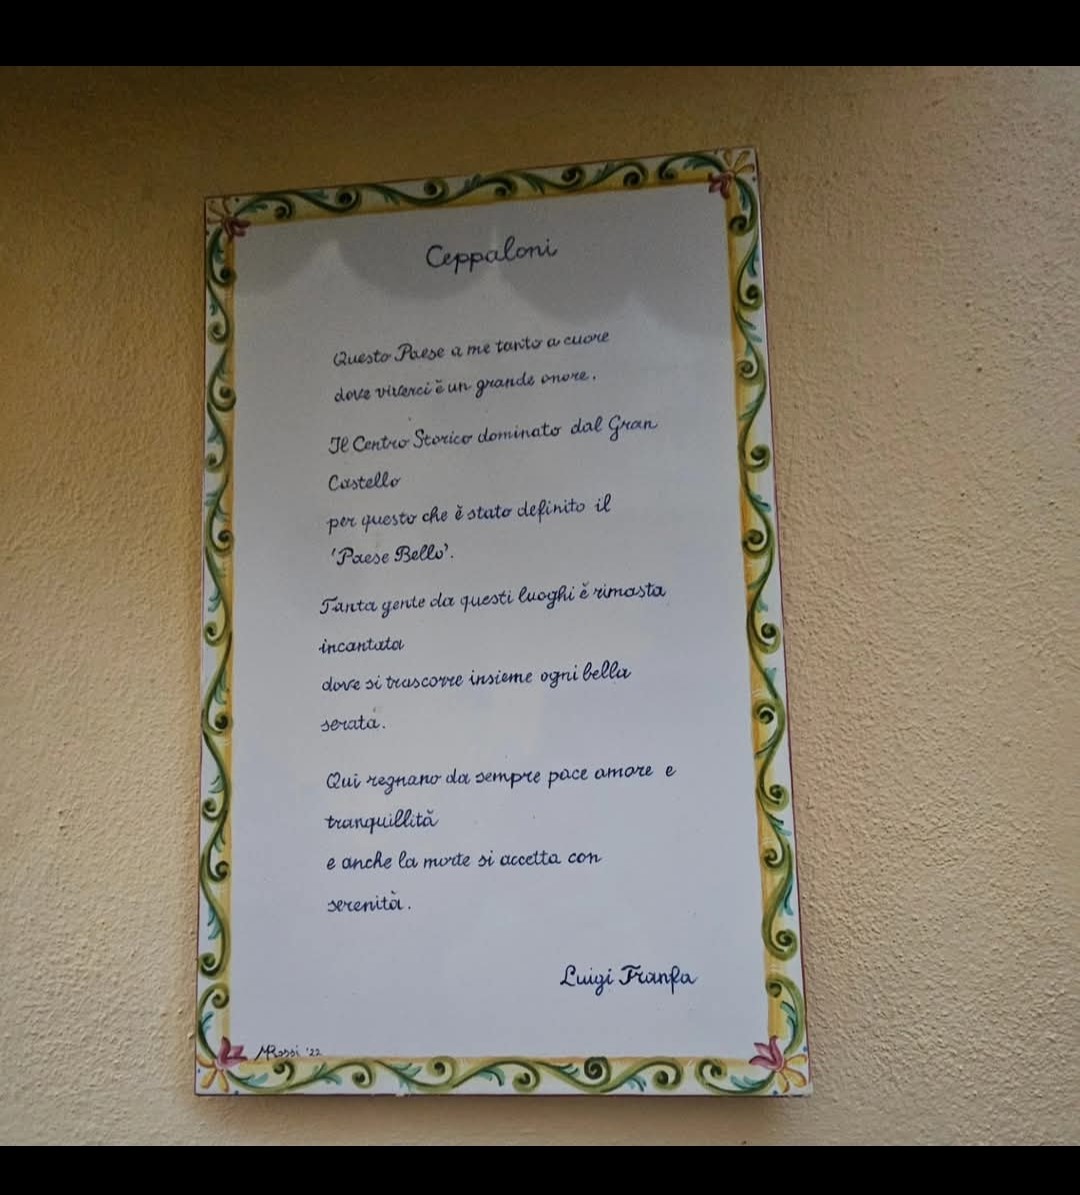 Ceppaloni
Questo Paese a me tanto a cuore
dove viverci è un grande onore.
Il Centro Storico dominato dal Gran
Castello
per questo che è stato definito il
'Paese Bello'.
Tanta gente da questi luoghi è rimasta
incantata
dove si trascorre insieme ogni bella
serata.
Qui regnano da sempre pace amore e
tranquillità
e anche la morte si accetta con
serenità.
Luigi Franfa
MRossi '22